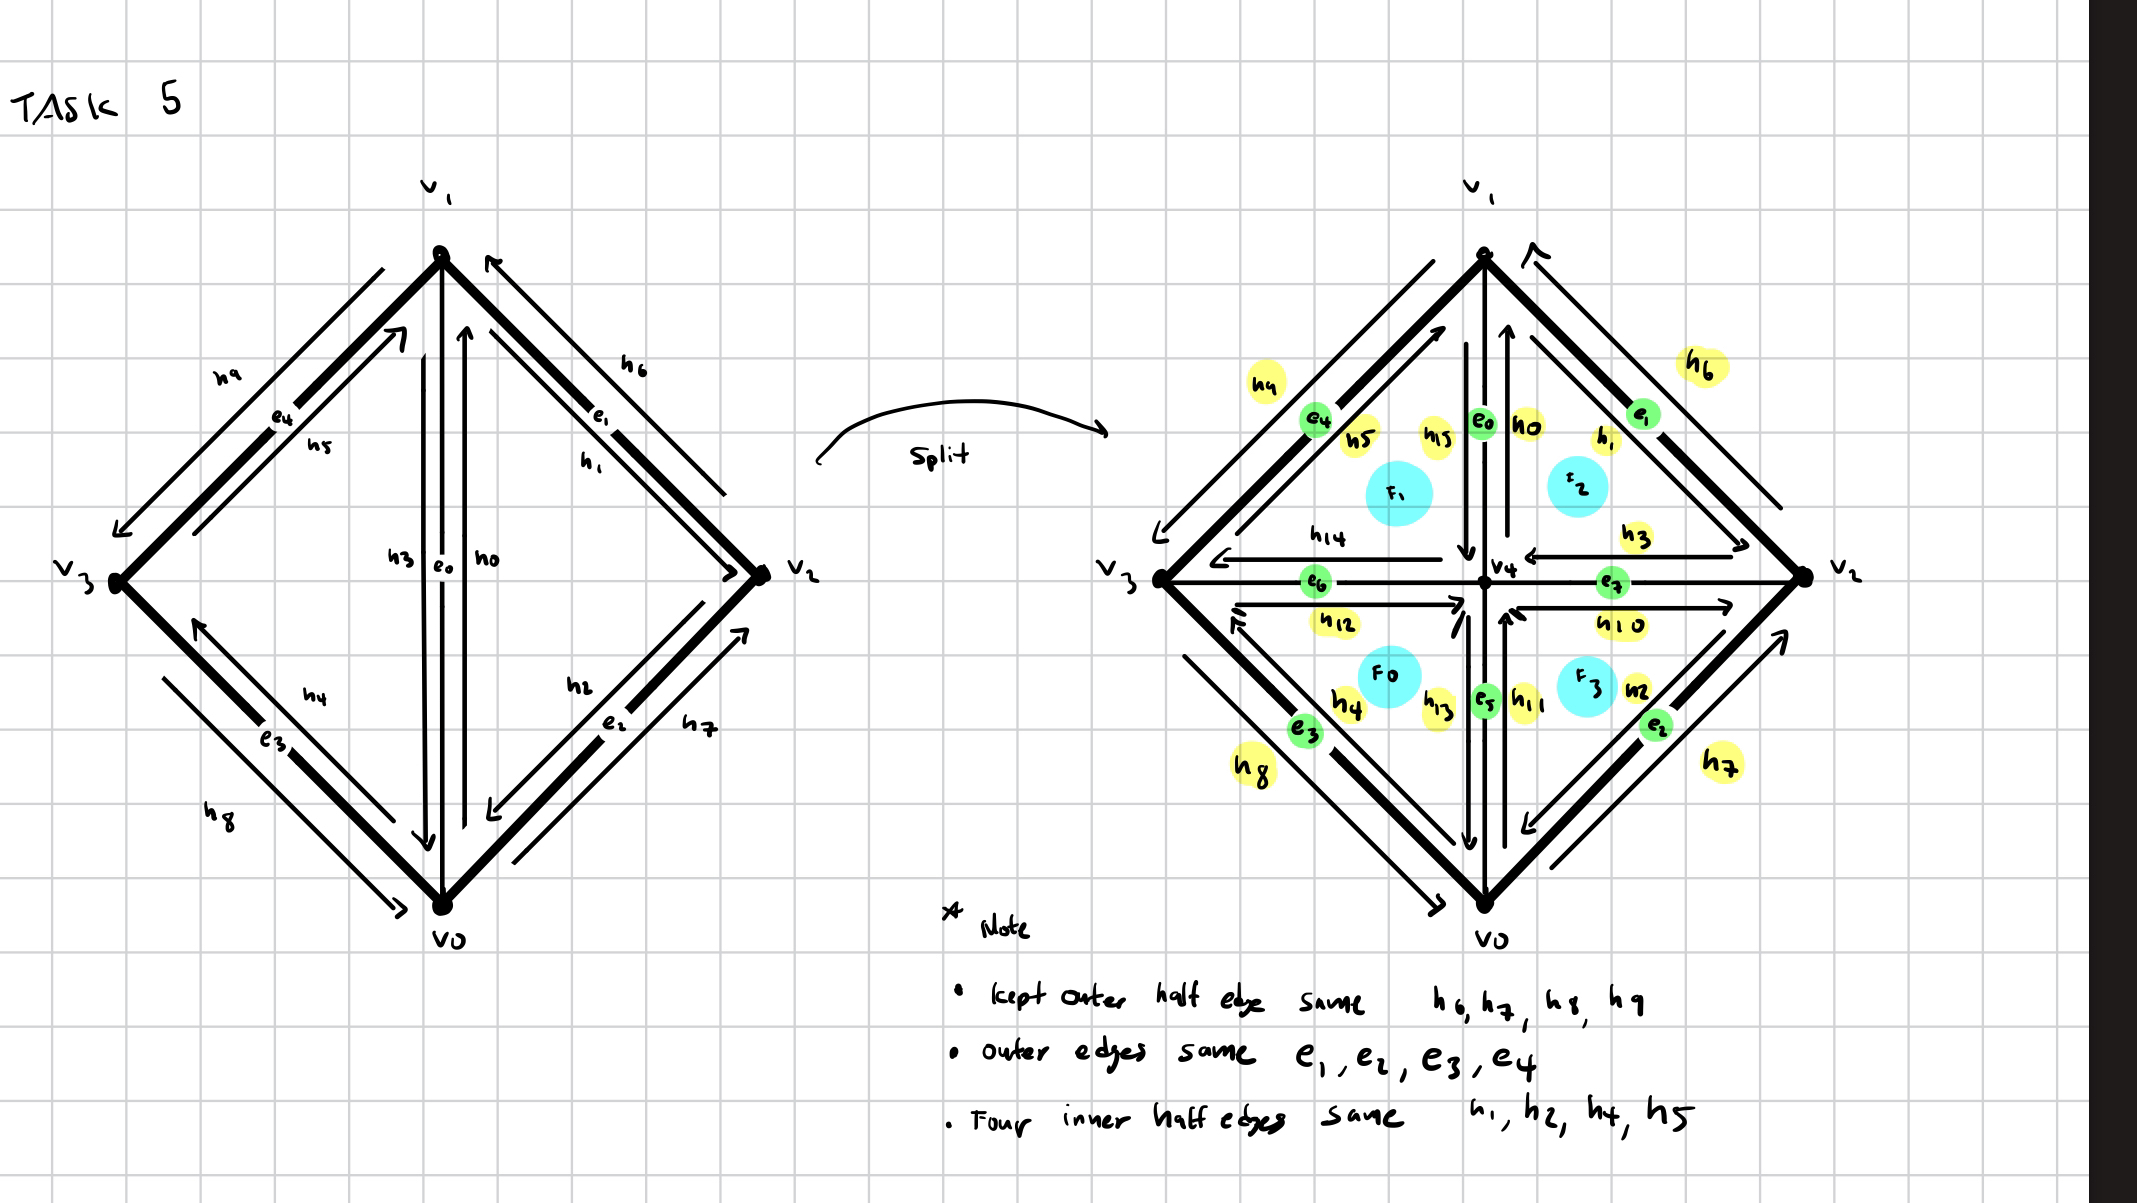 TASK 5
v1
h9
h6
e4
e1
h5
h1
v3
h3
e0
h0
v2
h4
h2
e3
e2
h7
h8
v0
Split
v1
h9
h6
e4
h5
h15
e0
h0
h1
e1
F1
F2
h14
h3
v3
e6
v4
e7
v2
h12
h10
F0
F3
h4
h13
e5
h11
h2
e3
e2
h8
h7
v0
* Note
• kept outer half edge same h6, h7, h8, h9
• outer edges same e1, e2, e3, e4
• Four inner half edges same h1, h2, h4, h5